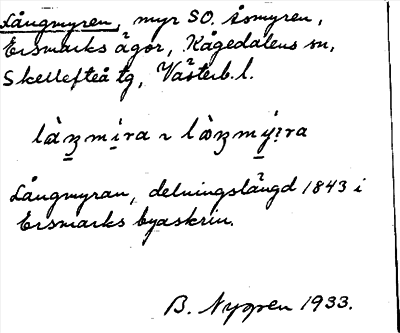 Långmyren, myr SO. åsmyren,
Ersmarks ägor, Kågedalens sn,
Skellefteå tg, Västerb. l.
Långmyran, delningslängd 1843 i
Ersmarks byaskrin.
B. Nygren 1933.